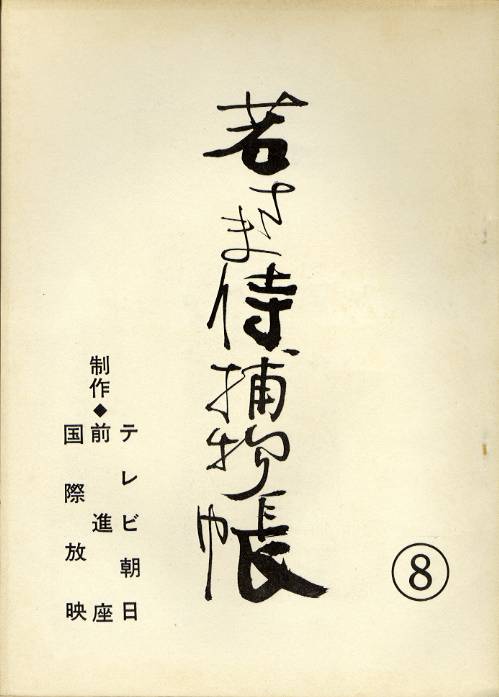 若さま侍捕物帳
⑧
テレビ朝日
制作◆前進座
国際放映